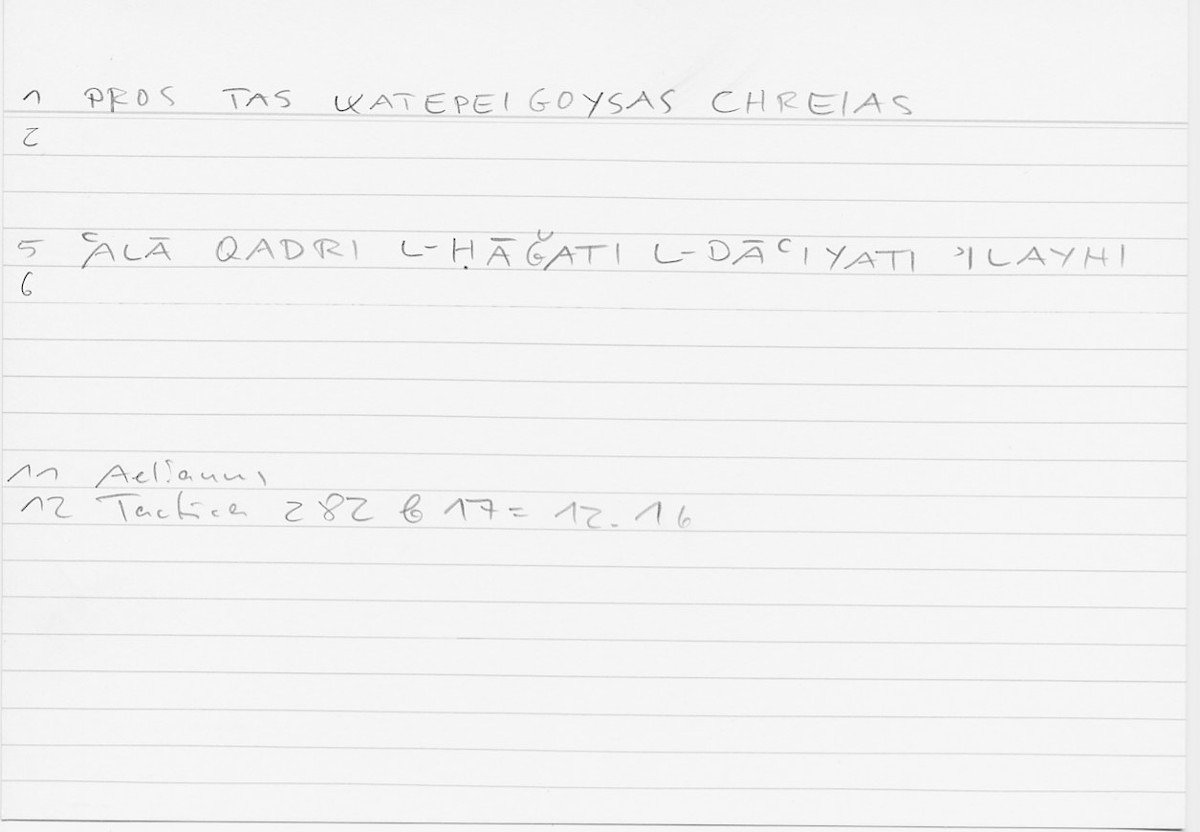 1 PROS TAS KATEPEIGOYSAS CHREIAS
2
5 ʿALĀ QADRI L-ḤĀǦATI L-DĀʿIYATI ʾILAYHI
6
11 Aelianus
12 Tactica 282 b 17 = 12.16